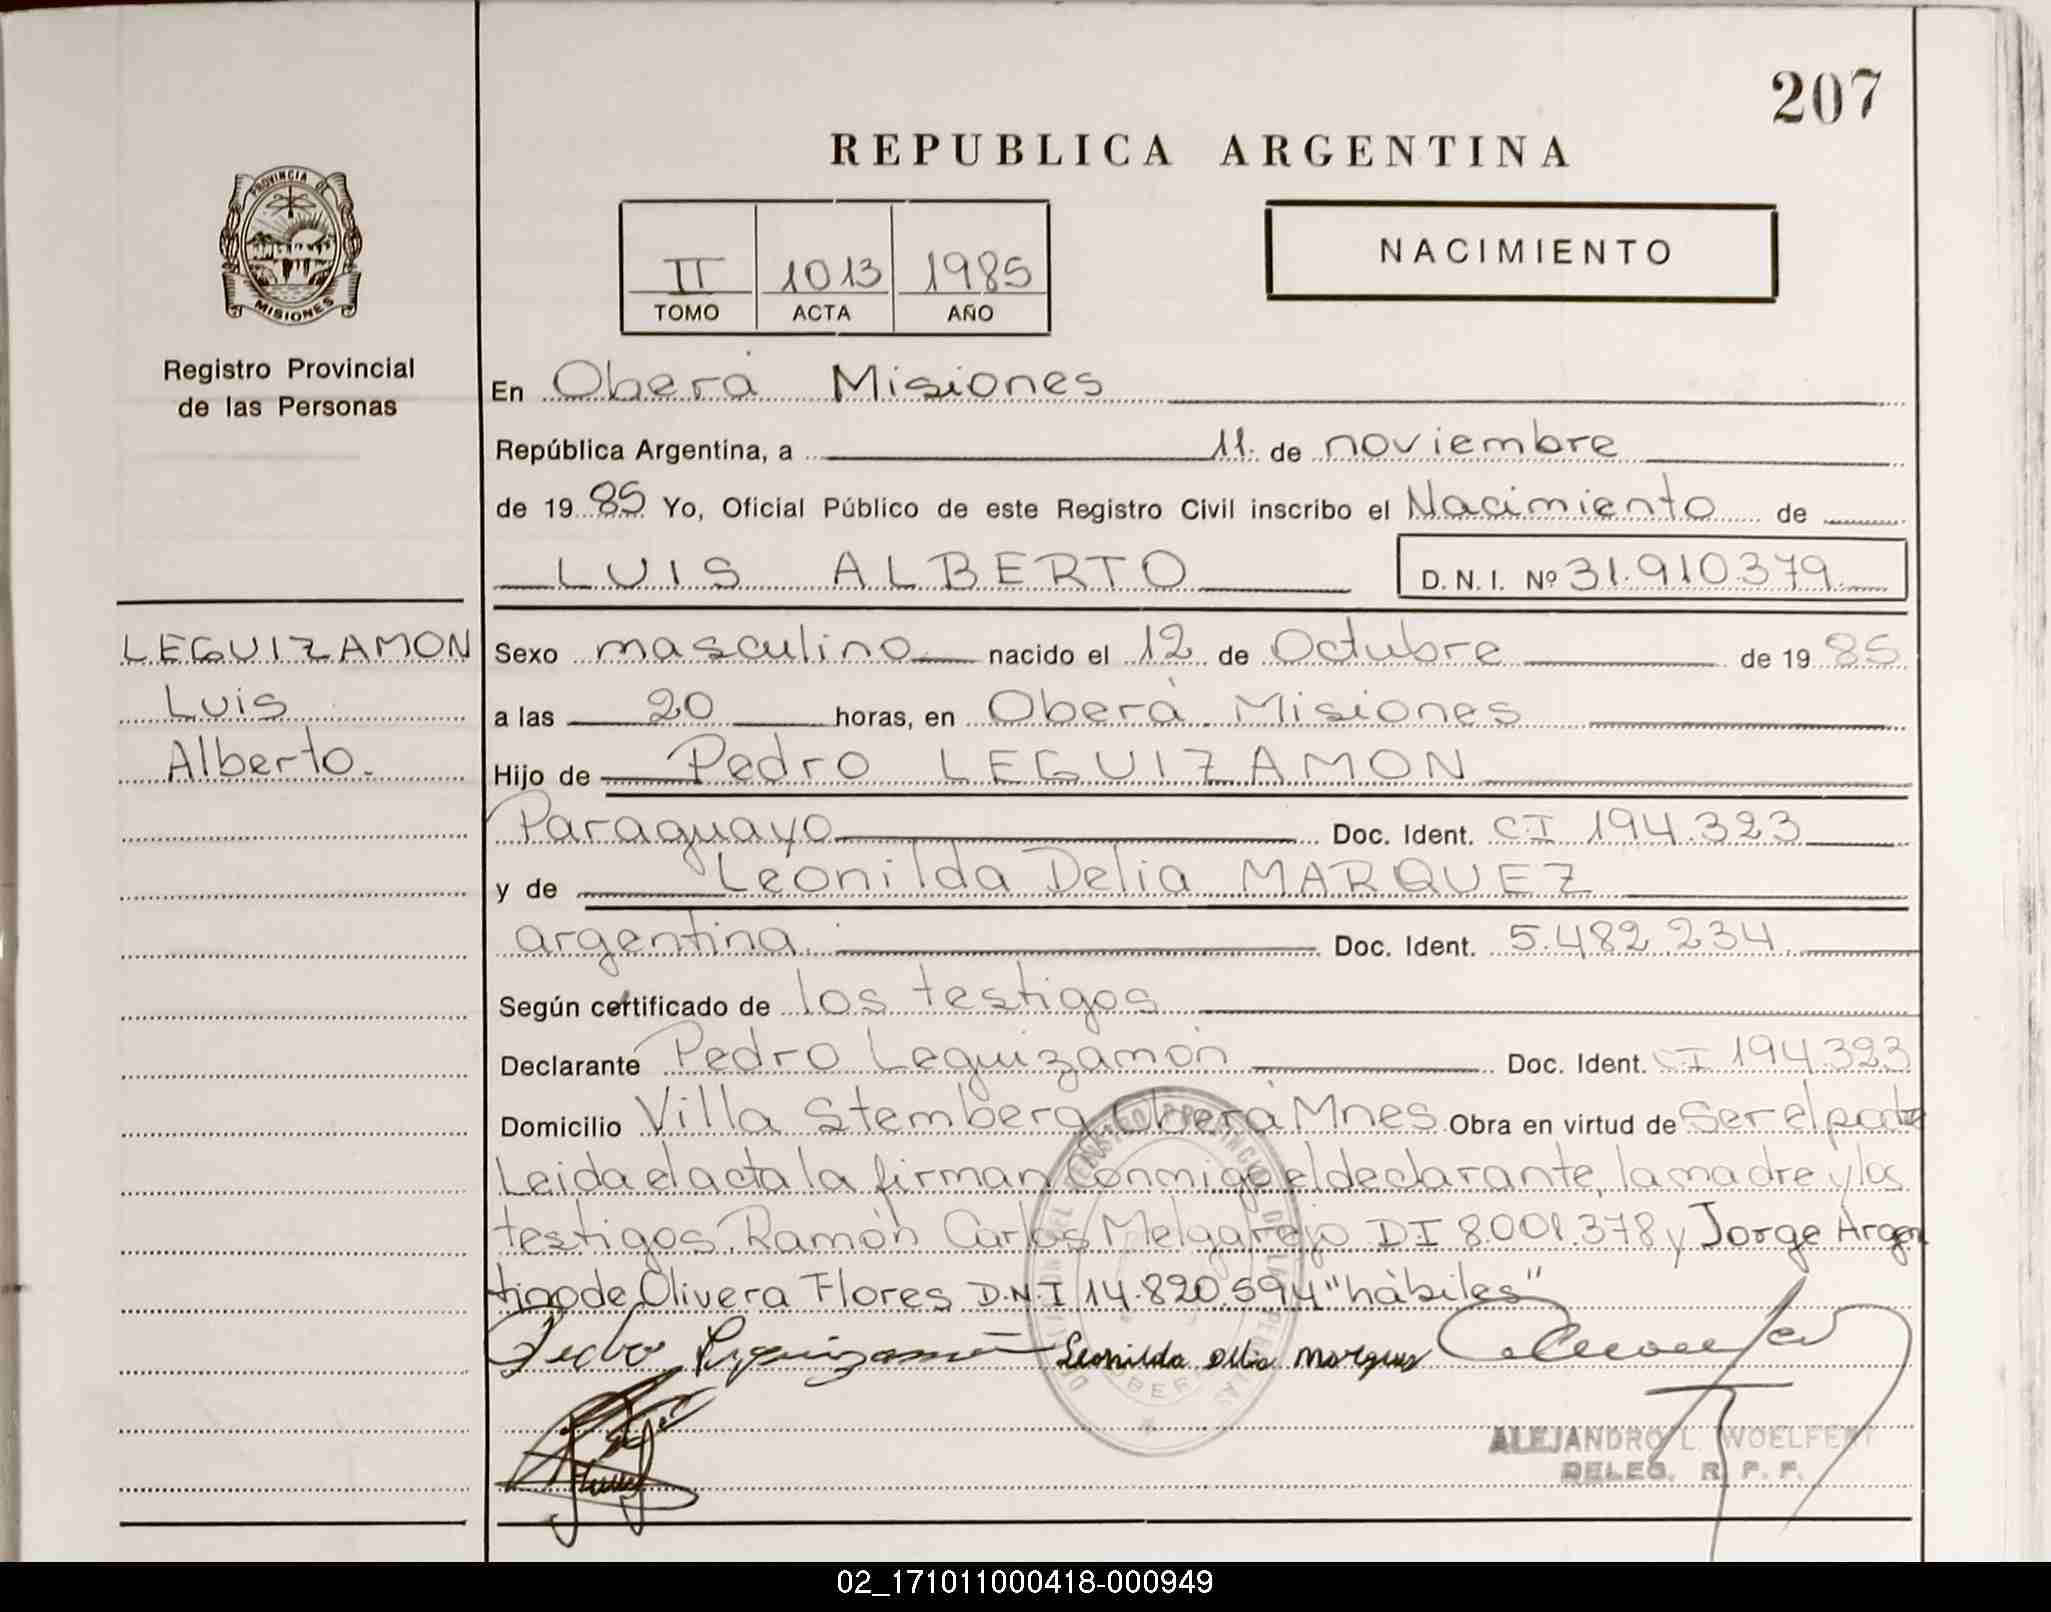 207
REPUBLICA ARGENTINA
PROVINCIA DE
MISIONES
Registro Provincial
de las Personas
II 1013 1985
TOMO ACTA AÑO
NACIMIENTO
En Oberá Misiones
República Argentina, a 11. de noviembre
de 19 85 Yo, Oficial Público de este Registro Civil inscribo el Nacimiento de
LUIS ALBERTO D. N. I. Nº 31.910.379.
LEGUIZAMON
Luis
Alberto.
Sexo masculino nacido el 12 de Octubre de 19 85
a las 20 horas, en Oberá Misiones
Hijo de Pedro LEGUIZAMON
Paraguayo Doc. Ident. CI 194.323
y de Leonilda Delia MARQUEZ
argentina. Doc. Ident. 5.482.234.
Según certificado de los testigos
Declarante Pedro Leguizamón Doc. Ident. CI 194.323
Domicilio Villa Stemberg Oberá Mnes Obra en virtud de ser el padre
Leida el acta la firman conmigo el declarante, la madre y los
testigos Ramón Carlos Melgarejo DI 8.001.378 y Jorge Argen
tino de Olivera Flores D.N.I 14.820.594 "hàbiles"
Pedro Leguizamón Leonilda Delia Marquez
OBERA
ALEJANDRO L. WOELFERT
DELEG. R. P. P.
02_171011000418-000949